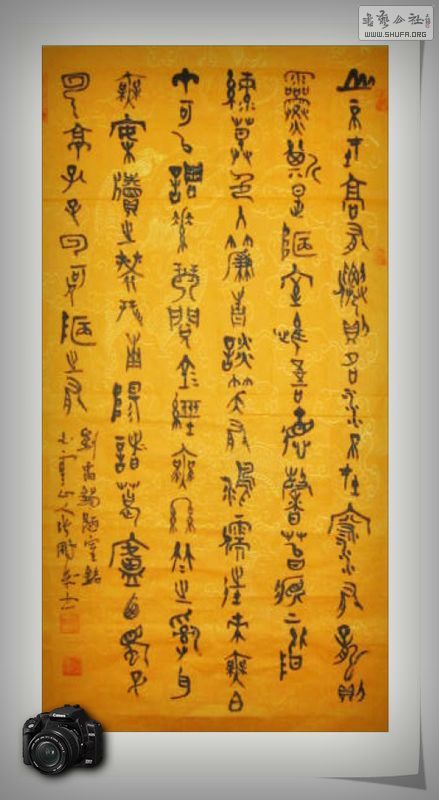 山不在高有僊則名水不在深水有龍則
靈斯是陋室惟吾德馨苔痕上階
綠草色入簾青談笑有鴻儒往來無白
丁可以調素琴閱金經無絲竹之亂耳
無案牘之勞形南陽諸葛廬西蜀子
云亭孔子曰何陋之有
劉禹錫陋室銘
山人
書藝公社
WWW.SHUFA.ORG
Canon